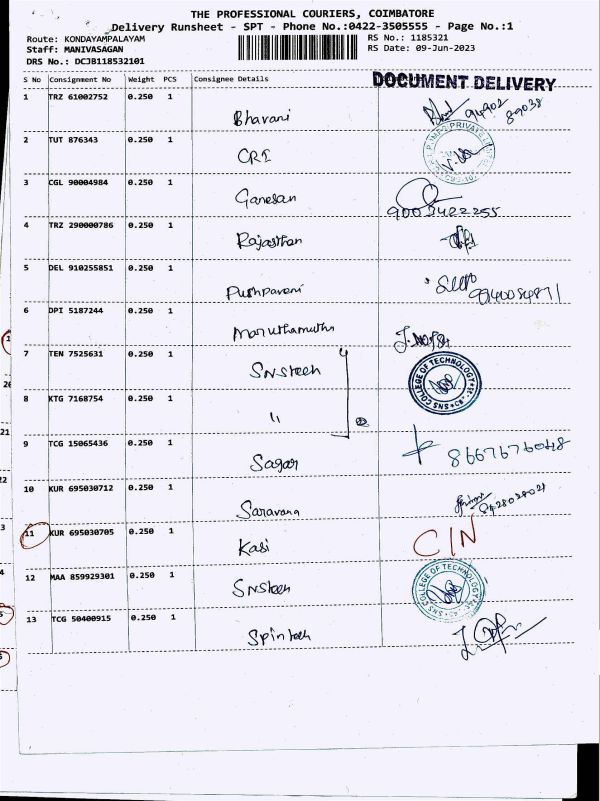 THE PROFESSIONAL COURIERS, COIMBATORE
Delivery Runsheet - SPT - Phone No.:0422-3505555 - Page No.:1
Route: KONDAYAMPALAYAM RS No.: 1185321
Staff: MANIVASAGAN RS Date: 09-Jun-2023
DRS No.: DCJB118532101
S No Consignment No Weight PCS Consignee Details
DOCUMENT DELIVERY
1 TRZ 61002752 0.250 1 Bhavani 94902 89038
2 TUT 876343 0.250 1 CRI
3 CGL 90004984 0.250 1 Ganesan 9003422255
4 TRZ 290000786 0.250 1 Rajasthan
5 DEL 910255851 0.250 1 Pushpavani
6 DPI 5187244 0.250 1 Maruthamuthu
7 TEN 7525631 0.250 1 SNSteeh SNS COLLEGE OF TECHNOLOGY
8 KTG 7168754 0.250 1 "
9 TCG 15065436 0.250 1 Sagar 8667676048
10 KUR 695030712 0.250 1 Saravana
11 KUR 695030705 0.250 1 Kasi CIN
12 MAA 859929301 0.250 1 SNSteeh COLLEGE OF TECHNOLOGY
13 TCG 50400915 0.250 1 Spinteeh